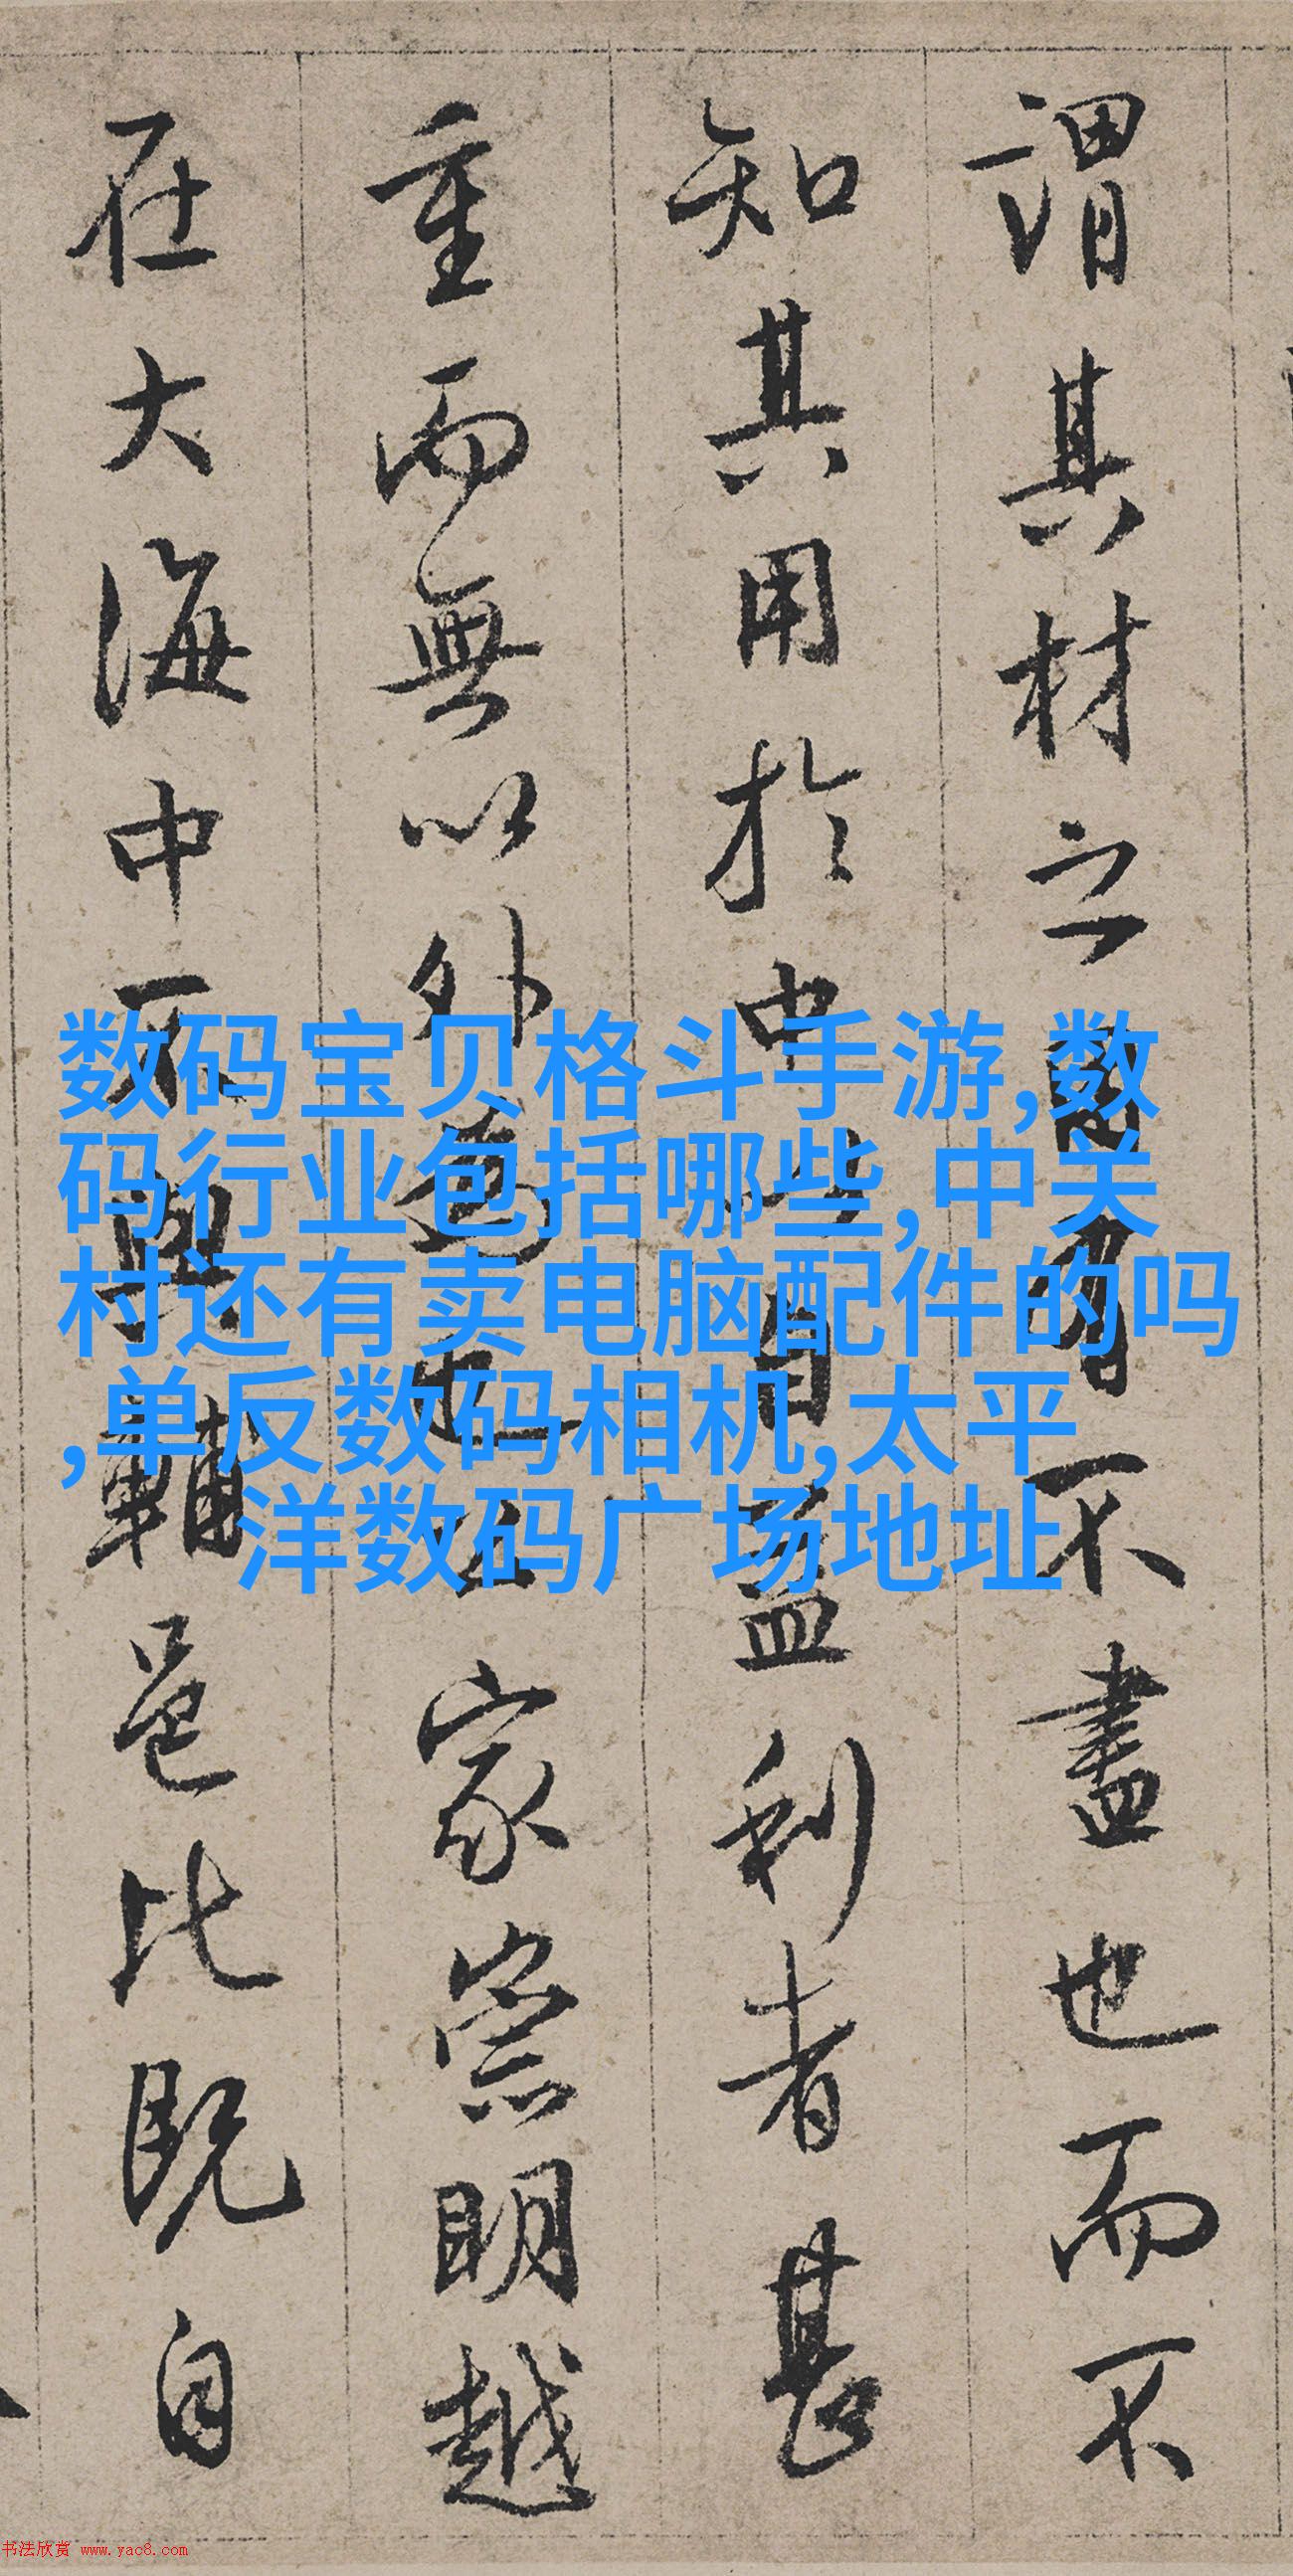 謂其材之不盡也而不
知其用於中自益利者甚
重而無以外家崇明越
在大海中不與輔邑比既自
数码宝贝格斗手游,数
码行业包括哪些,中关
村还有卖电脑配件的吗
,单反数码相机,太平
洋数码广场地址
书法欣赏 www.yac8.com